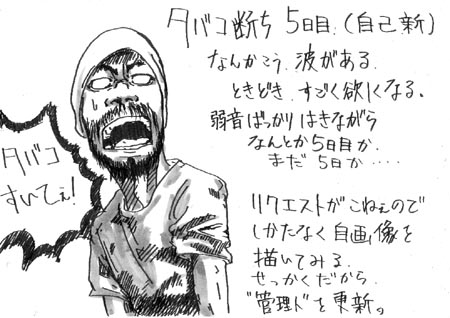 タバコ断ち 5日目.(自己新)
なんかこう.波がある.
ときどき.すごく欲しくなる。
弱音ばっかりはきながら
なんとか5日目か.
まだ 5日か‥‥
タバコ
すいてぇ!
リクエストがこねぇので
しかたなく自画像を
描いてみる.
せっかくだから.
"管理人"を更新。